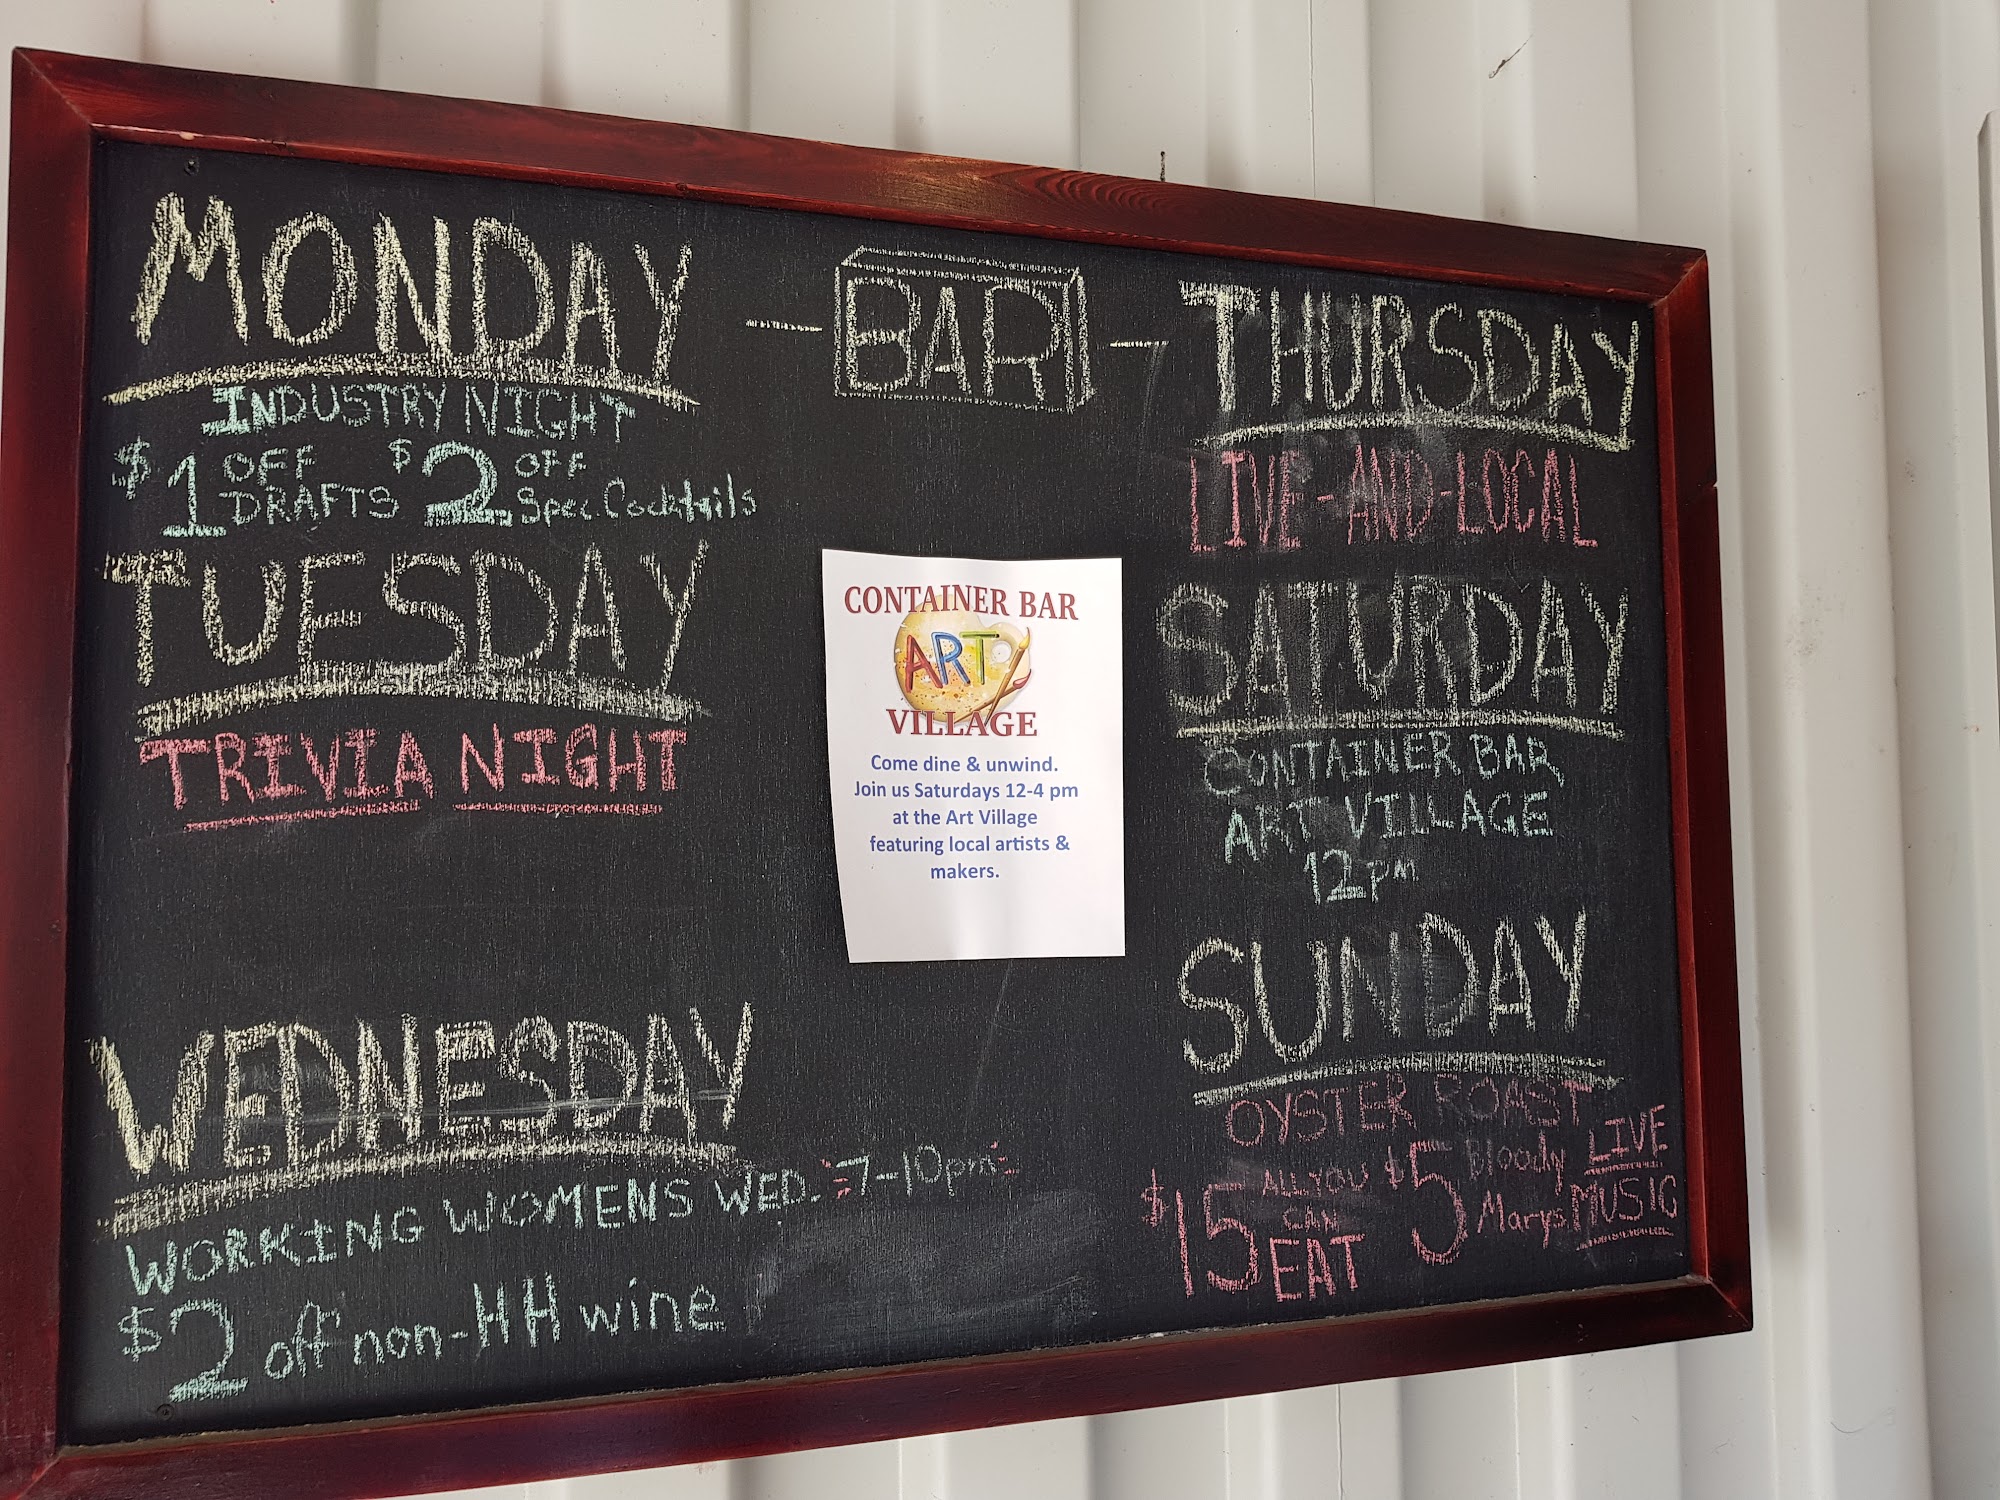 MONDAY
INDUSTRY NIGHT
$1 OFF DRAFTS $2 OFF Spec. Cocktails
TUESDAY
TRIVIA NIGHT
WEDNESDAY
WORKING WOMENS WED. 7-10pm
$2 off non-HH wine
- BAR -
CONTAINER BAR
ART
VILLAGE
Come dine & unwind.
Join us Saturdays 12-4 pm
at the Art Village
featuring local artists &
makers.
THURSDAY
LIVE-AND-LOCAL
SATURDAY
CONTAINER BAR
ART VILLAGE
12pm
SUNDAY
OYSTER ROAST
$15 ALL YOU CAN EAT $5 Bloody Marys LIVE MUSIC